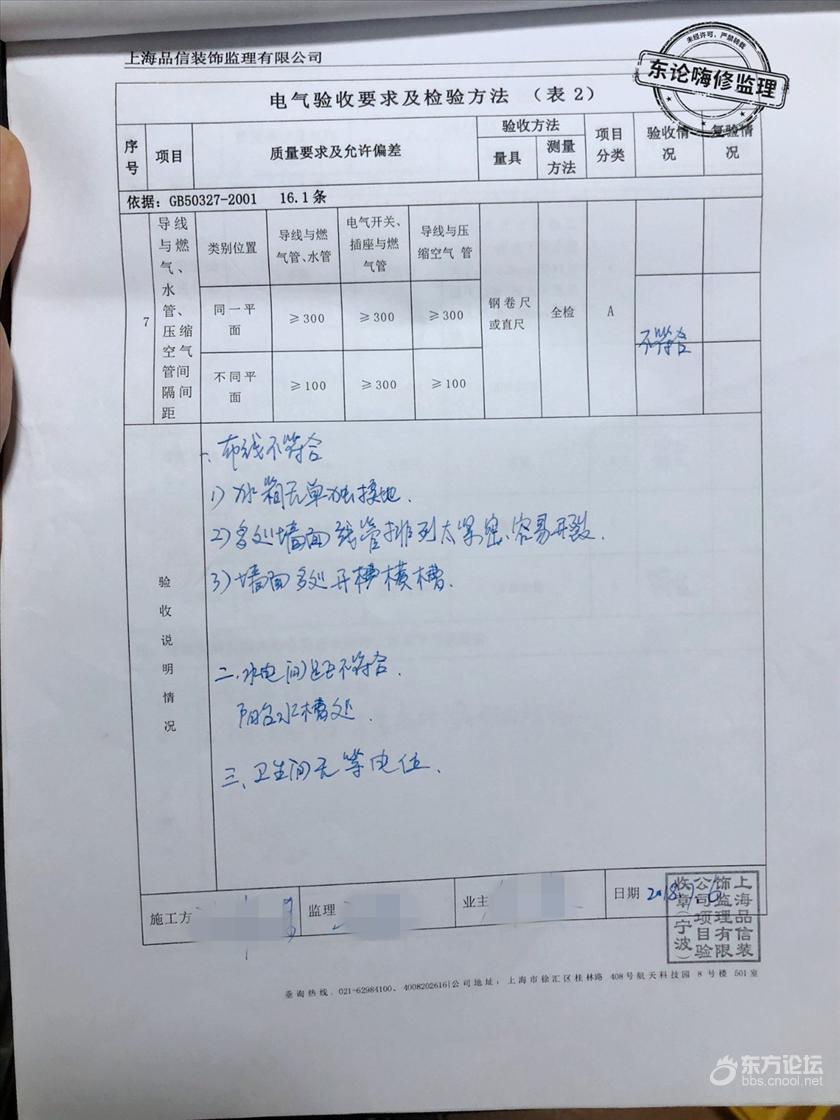 上海品信装饰监理有限公司
未经许可，严禁转载
东论嗨修监理
电气验收要求及检验方法 （表 2）
序号 项目 质量要求及允许偏差 验收方法 项目分类 验收情况 复验情况
量具 测量方法
依据：GB50327-2001 16.1 条
7 导线与燃气、水管、压缩空气管间隔间距
类别位置 导线与燃气管、水管 电气开关、插座与燃气管 导线与压缩空气 管
同一平面 ≥300 ≥300 ≥300
钢卷尺或直尺 全检 A 不符合
不同平面 ≥100 ≥300 ≥100
验收说明情况
一、布线不符合
1）冰箱无单独接地.
2）多处墙面线管排列太紧密、容易开裂.
3）墙面多处开槽横槽.
二、水电间距不符合.
阳台水槽处.
三、卫生间无等电位.
施工方 监理 业主 日期 2018.
上海品信装饰监理有限公司项目验收章(宁波)
垂询热线：021-62984100、4008202616|公司地址：上海市徐汇区桂林路 408号航天科技园 8 号楼 501室
东方论坛
bbs.cnool.net